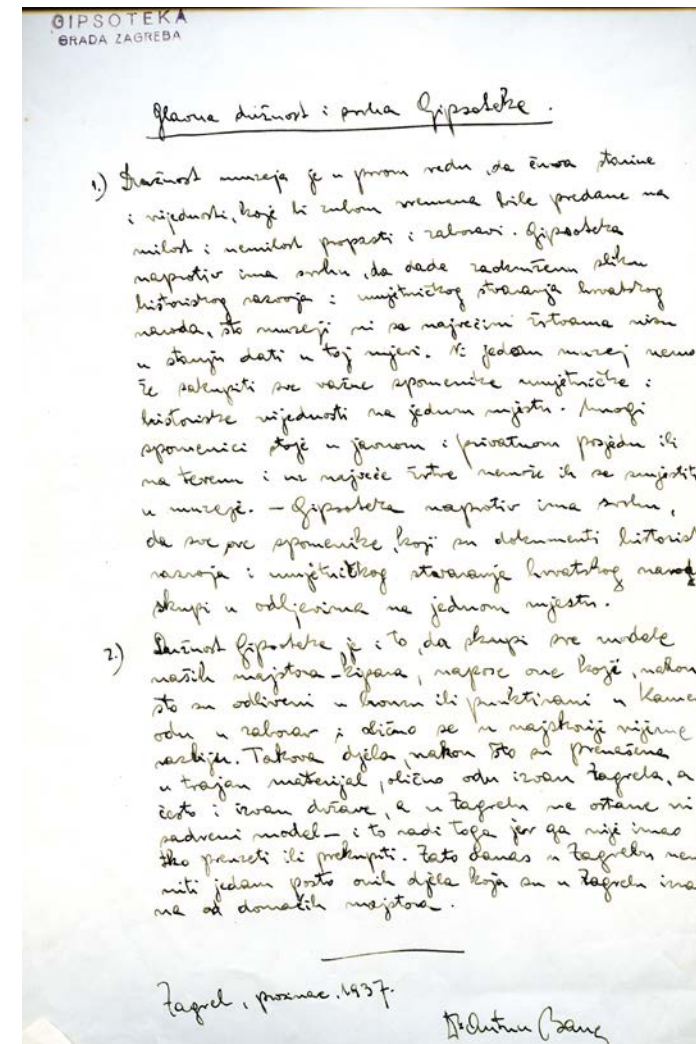 GIPSOTEKA
GRADA ZAGREBA
Glavna dužnost i svrha Gipsoteke.
1.) Dužnost muzeja je u prvom redu, da čuva starine
i vrijednosti, koje bi zubom vremena bile predane na
milost i nemilost propasti i zaboravi. Gipsoteka
naprotiv ima svrhu, da dade zaokruženu sliku
historiskog razvoja i umjetničkog stvaranja hrvatskog
naroda, što muzeji ni sa najvećim žrtvama nisu
u stanju dati u toj mjeri. Ni jedan muzej nemo
že sakupiti sve važne spomenike umjetničke i
historiske vrijednosti na jednom mjestu. Mnogi
spomenici stoje u javnom i privatnom posjedu ili
na terenu i uz najveće žrtve nemože ih se smjestiti
u muzeje. — Gipsoteka naprotiv ima svrhu,
da sve ove spomenike, koji su dokumenti historisk
razvoja i umjetničkog stvaranja hrvatskog narod
skupi u odljevima na jednom mjestu.
2.) Dužnost Gipsoteke je i to, da skupi sve modele
naših majstora-kipara, napose one koje, nakon
što su odliveni u broncu ili punktirani u kame
odu u zaborav i obično se u najskorije vrijeme
razbiju. Takova djela, nakon što su prenašena
u trajan materijal, obično odu izvan Zagreba, a
često i izvan države, a u Zagrebu ne ostane ni
sadreni model — i to radi toga jer ga nije imao
tko preuzeti ili prekupiti. Zato danas u Zagrebu nem
niti jedam posto onih djela koja su u Zagrebu izra
na od domaćih majstora.
Zagreb, prosinac, 1937.
Dr Antun Bauer